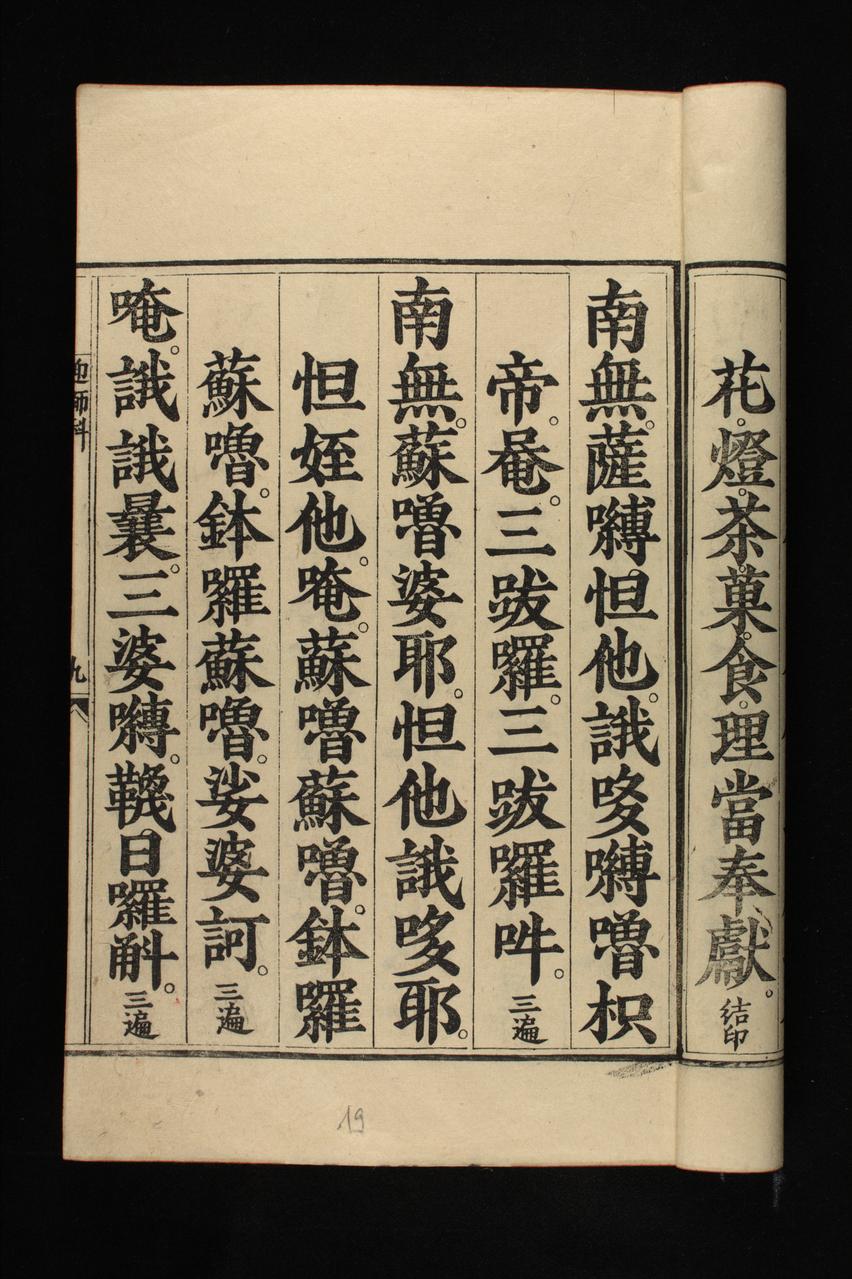 花。燈。茶。菓。食。理當奉獻。結印
南無。薩嚩怛他。誐哆嚩嚕枳
帝。唵。三跋囉。三跋囉吽。三遍
南無。蘇嚕婆耶。怛他誐哆耶。
怛姪他。唵。蘇嚕蘇嚕。鉢囉
蘇嚕。鉢囉蘇嚕。娑婆訶。三遍
唵。誐誐曩。三婆嚩。韈日囉斛。三遍
師科
九
19